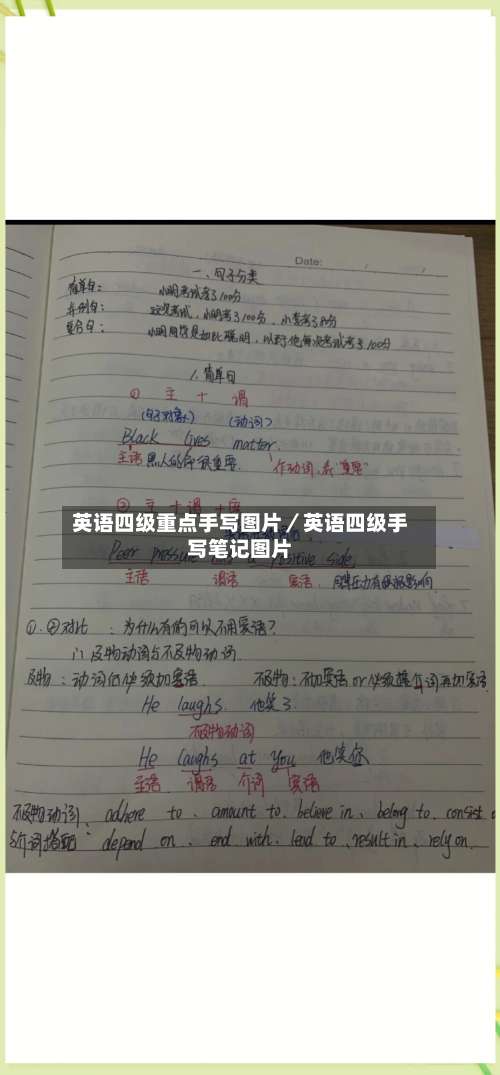 Date: / /
一、句子分类
简单句： 小明考试考了100分
并列句： 这次考试，小明考了100分，小李考了80分
复合句： 小明同学是如此聪明，以致于他每次考试考了100分
1.简单句
① 主 + 谓
(动词)
Black lives matter.
主语 黑人的命很重要. 作动词，表"重要"
② 主 + 谓 + 宾
英语四级重点手写图片/英语四级手
写笔记图片
Peer pressure a positive side.
主语 谓语 宾语
①.②对比 : 为什么有的可以不用宾语?
及物动词与不及物动词.
及物 : 动词后必须加宾语. 不及物: 不加宾语or必须搭介词再加宾语.
He laughs. 他笑了
不及物动词
He laughs at you 他笑你
主语 谓语 介词 宾语
不及物动词 adhere to、amount to、believe in、belong to、consist
与介词搭配: depend on、end with、lead to、result in、rely on